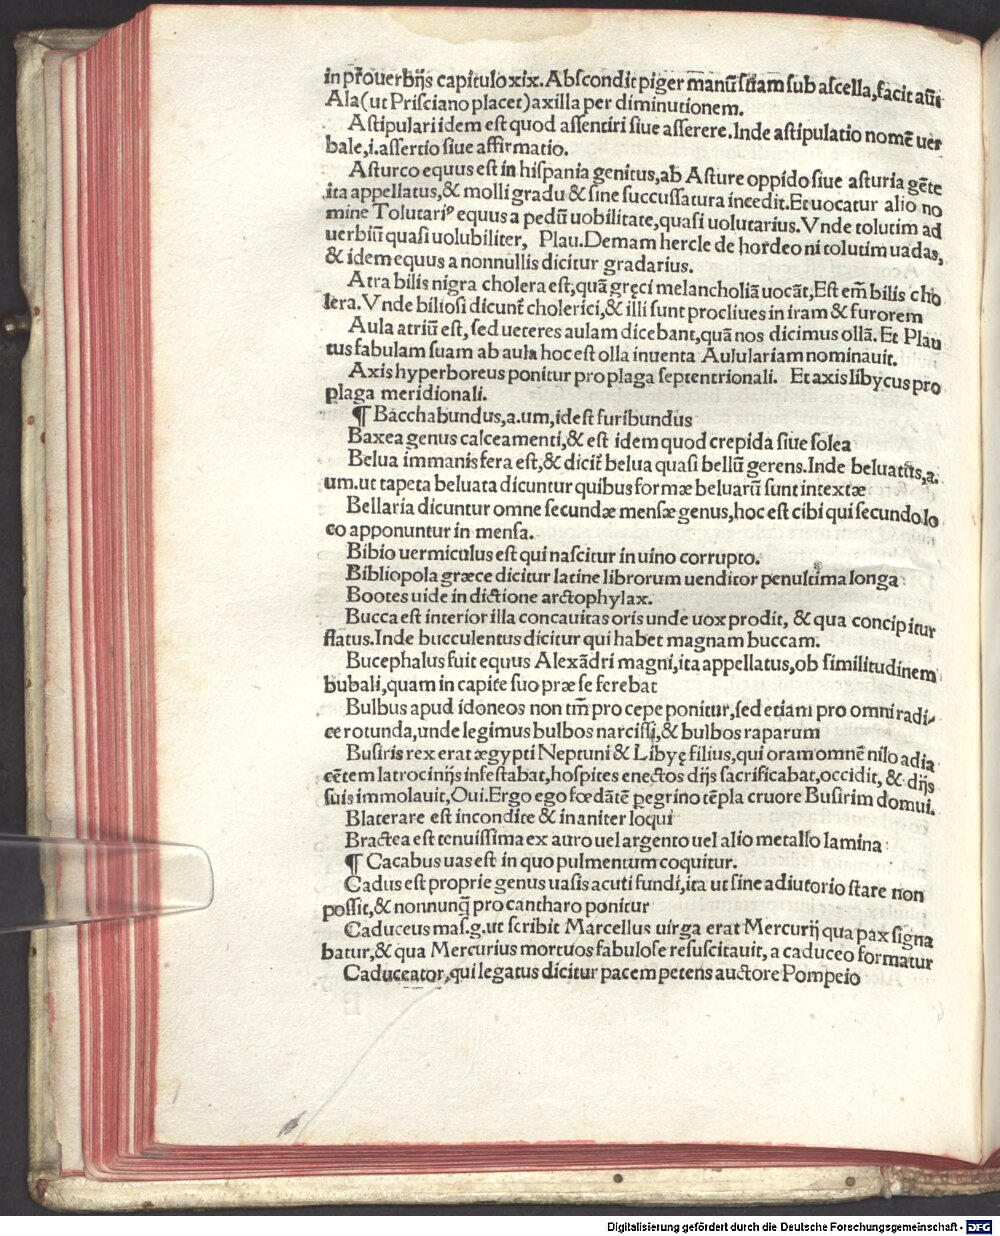 in ꝓ̄ouerbĳs capitulo xix. Abſcondit piger manū ſuam ſub aſcella, facit aūt
Ala(ut Priſciano placet)axilla per diminutionem.
Aſtipulari idem eſt quod aſſentiri ſiue aſſerere. Inde aſtipulatio nomē uer
bale, i. aſſertio ſiue affirmatio.
Aſturco equus eſt in hiſpania genitus, ab Aſture oppido ſiue aſturia gēte
ita appellatus, & molli gradu & ſine ſuccuſſatura incedit. Et uocatur alio no
mine Tolutariꝰ equus a pedū uobilitate, quaſi uolutarius. Vnde tolutim ad
uerbiū quaſi uolubiliter, Plau. Demam hercle de hordeo ni tolutim uadas,
& idem equus a nonnullis dicitur gradarius.
Atra bilis nigra cholera eſt, quā gręci melancholiā uocāt, Eſt em̄ bilis cho
lera. Vnde bilioſi dicunt̄ cholerici, & illi ſunt procliues in iram & furorem
Aula atriū eſt, ſed ueteres aulam dicebant, quā nos dicimus ollā. Et Plau
tus fabulam ſuam ab aula hoc eſt olla inuenta Aululariam nominauit.
Axis hyperboreus ponitur pro plaga ſeptentrionali. Et axis libycus pro
plaga meridionali.
¶ Bacchabundus, a. um, id eſt furibundus
Baxea genus calceamenti, & eſt idem quod crepida ſiue ſolea
Belua immanis fera eſt, & dicit̄ belua quaſi bellū gerens. Inde beluatus, a.
um. ut tapeta beluata dicuntur quibus formæ beluarū ſunt intextæ
Bellaria dicuntur omne ſecundæ menſæ genus, hoc eſt cibi qui ſecundo lo
co apponuntur in menſa.
Bibio uermiculus eſt qui naſcitur in uino corrupto.
Bibliopola græce dicitur latine librorum uenditor penultima longa
Bootes uide in dictione arctophylax.
Bucca eſt interior illa concauitas oris unde uox prodit, & qua concipitur
flatus. Inde bucculentus dicitur qui habet magnam buccam.
Bucephalus fuit equus Alexādri magni, ita appellatus, ob ſimilitudinem
bubali, quam in capite ſuo præ ſe ferebat
Bulbus apud idoneos non tm̄ pro cepe ponitur, ſed etiam pro omni radi-
ce rotunda, unde legimus bulbos narciſſi, & bulbos raparum
Buſiris rex erat ægypti Neptuni & Libyę filius, qui oram omnē nilo adia
cētem latrocinĳs infeſtabat, hoſpites enectos dĳs ſacrificabat, occidit, & dĳs
ſuis immolauit, Oui. Ergo ego fœdātē ꝑegrino tēpla cruore Buſirim domui.
Blaterare eſt incondite & inaniter loqui
Bractea eſt tenuiſſima ex auro uel argento uel alio metallo lamina
¶ Cacabus uas eſt in quo pulmentum coquitur.
Cadus eſt proprie genus uaſis acuti fundi, ita ut ſine adiutorio ſtare non
poſſit, & nonnunq̄ pro cantharo ponitur
Caduceus maſ. g. ut ſcribit Marcellus uirga erat Mercurĳ qua pax ſigna
batur, & qua Mercurius mortuos fabuloſe reſuſcitauit, a caduceo formatur
Caduceator, qui legatus dicitur pacem petens auctore Pompeio
Digitalisierung gefördert durch die Deutsche Forschungsgemeinschaft - DFG